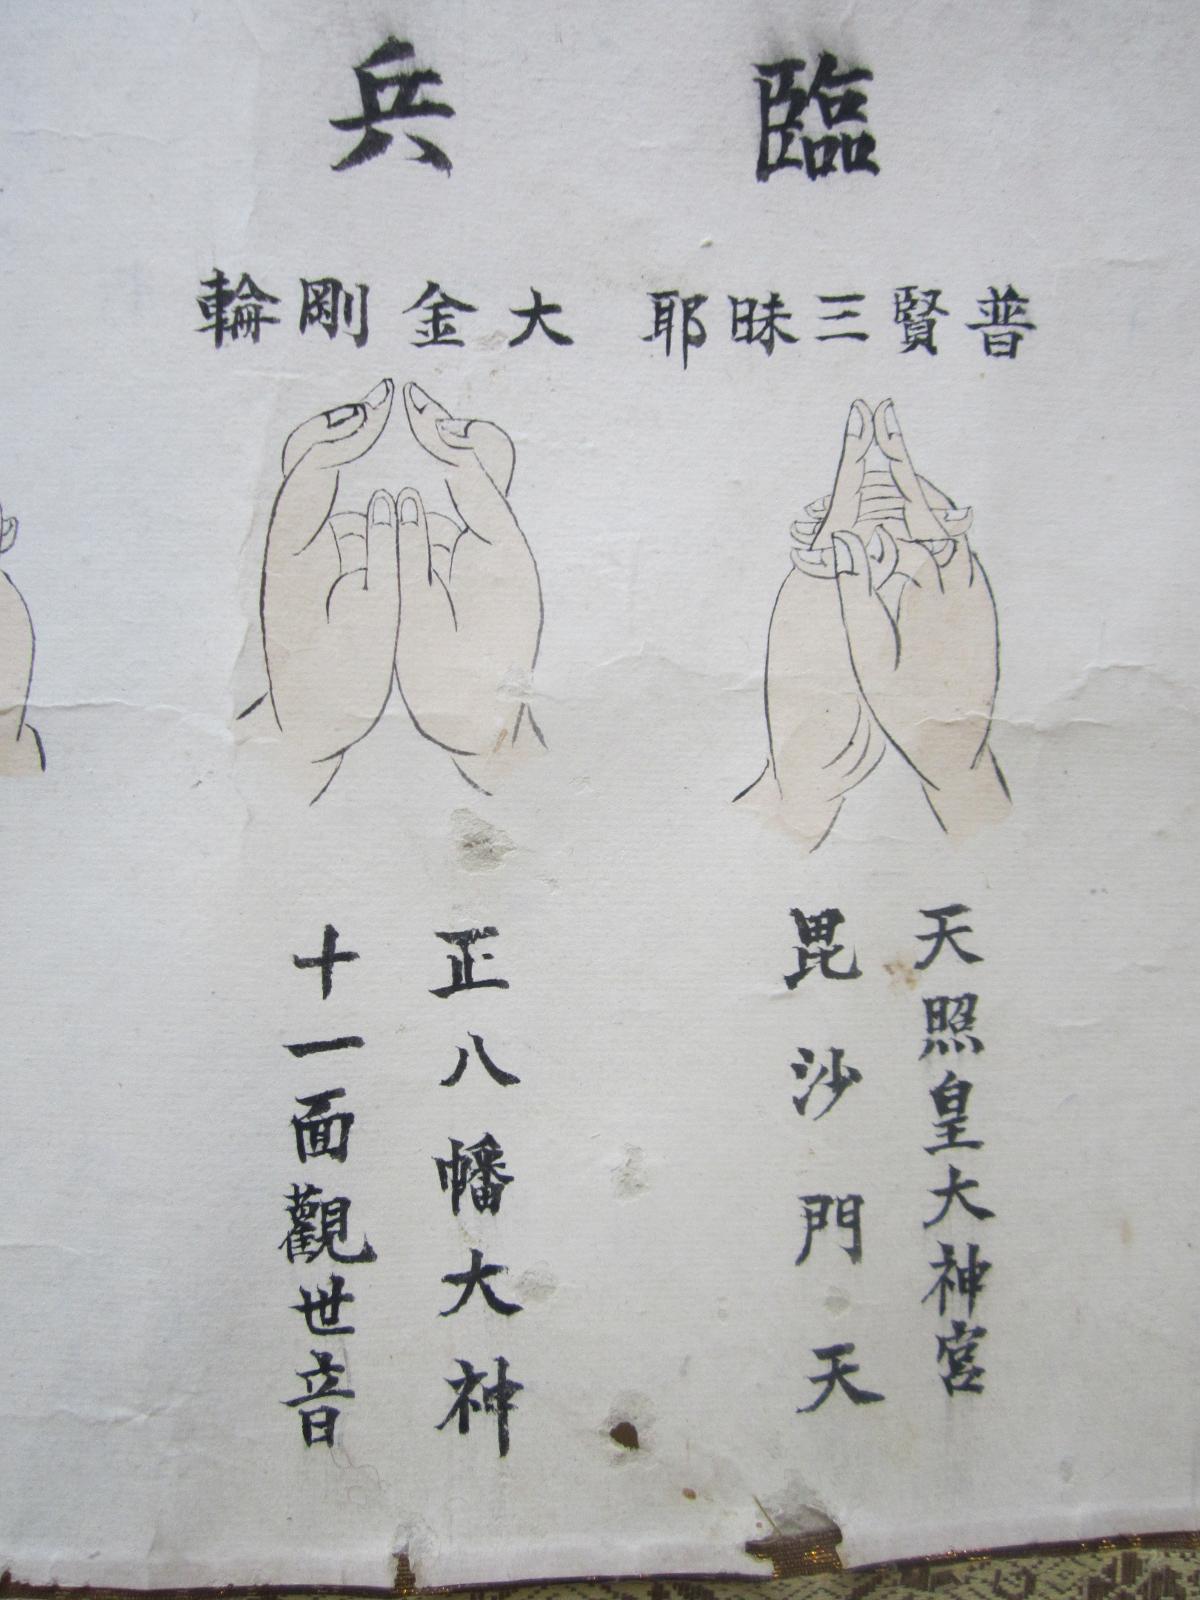 臨
普賢三昧耶
天照皇大神宮
毘沙門天
兵
大金剛輪
正八幡大神
十一面觀世音